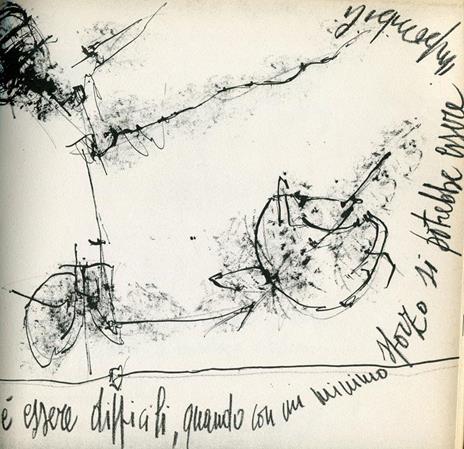 é essere difficili, quando con un minimo sforzo si potrebbe essere impossibili